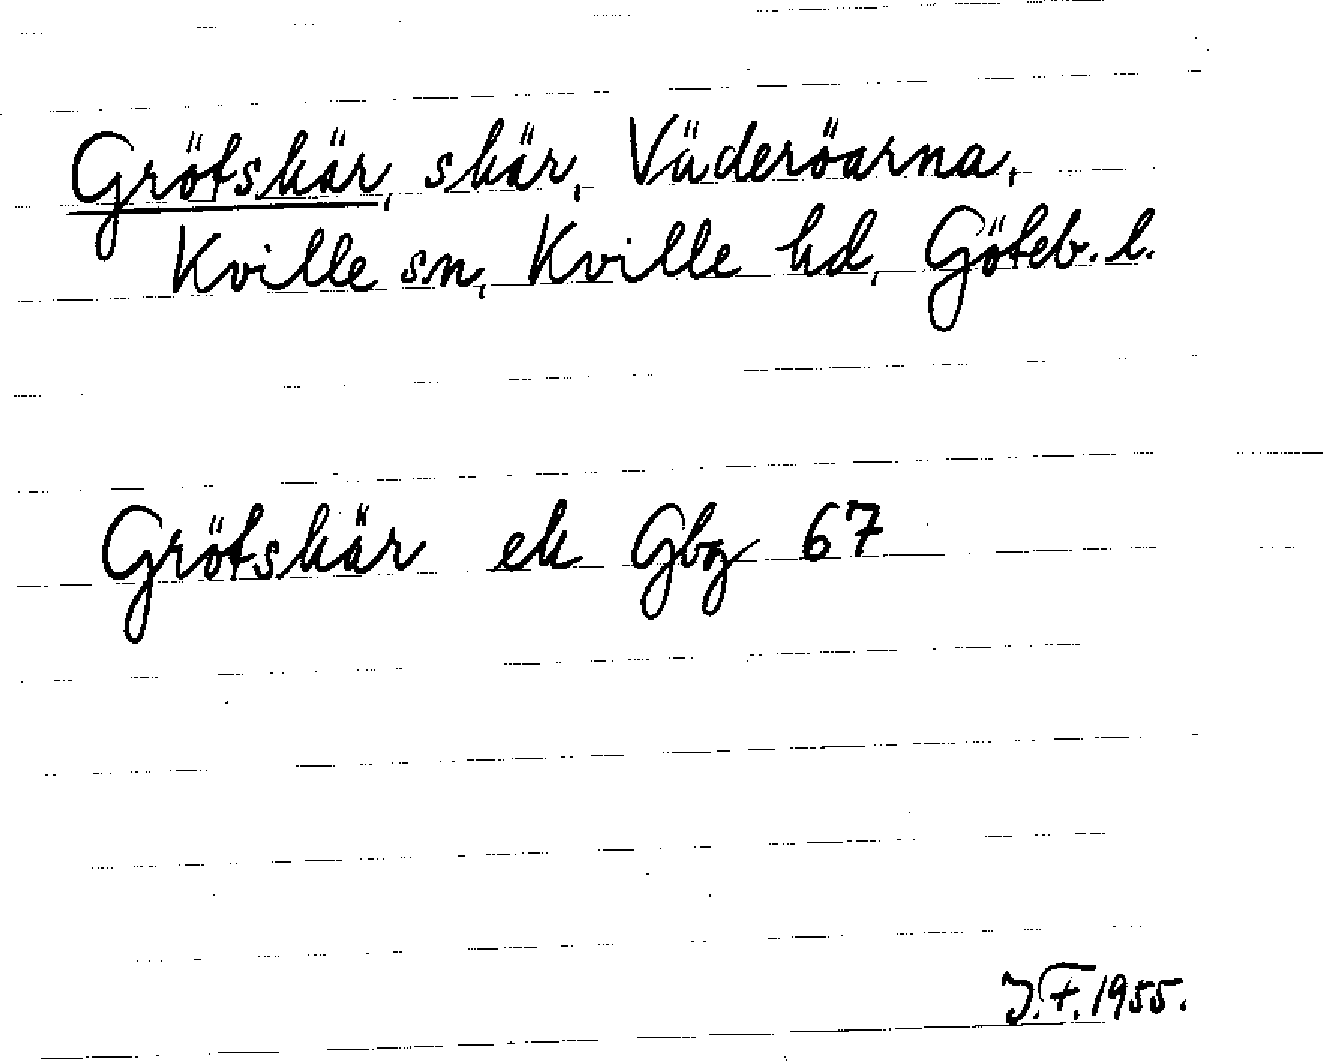 Grötskär, skär, Väderöarna,
Kville sn, Kville hd, Göteb. l.
Grötskär ek Gbg 67
J.F. 1955.